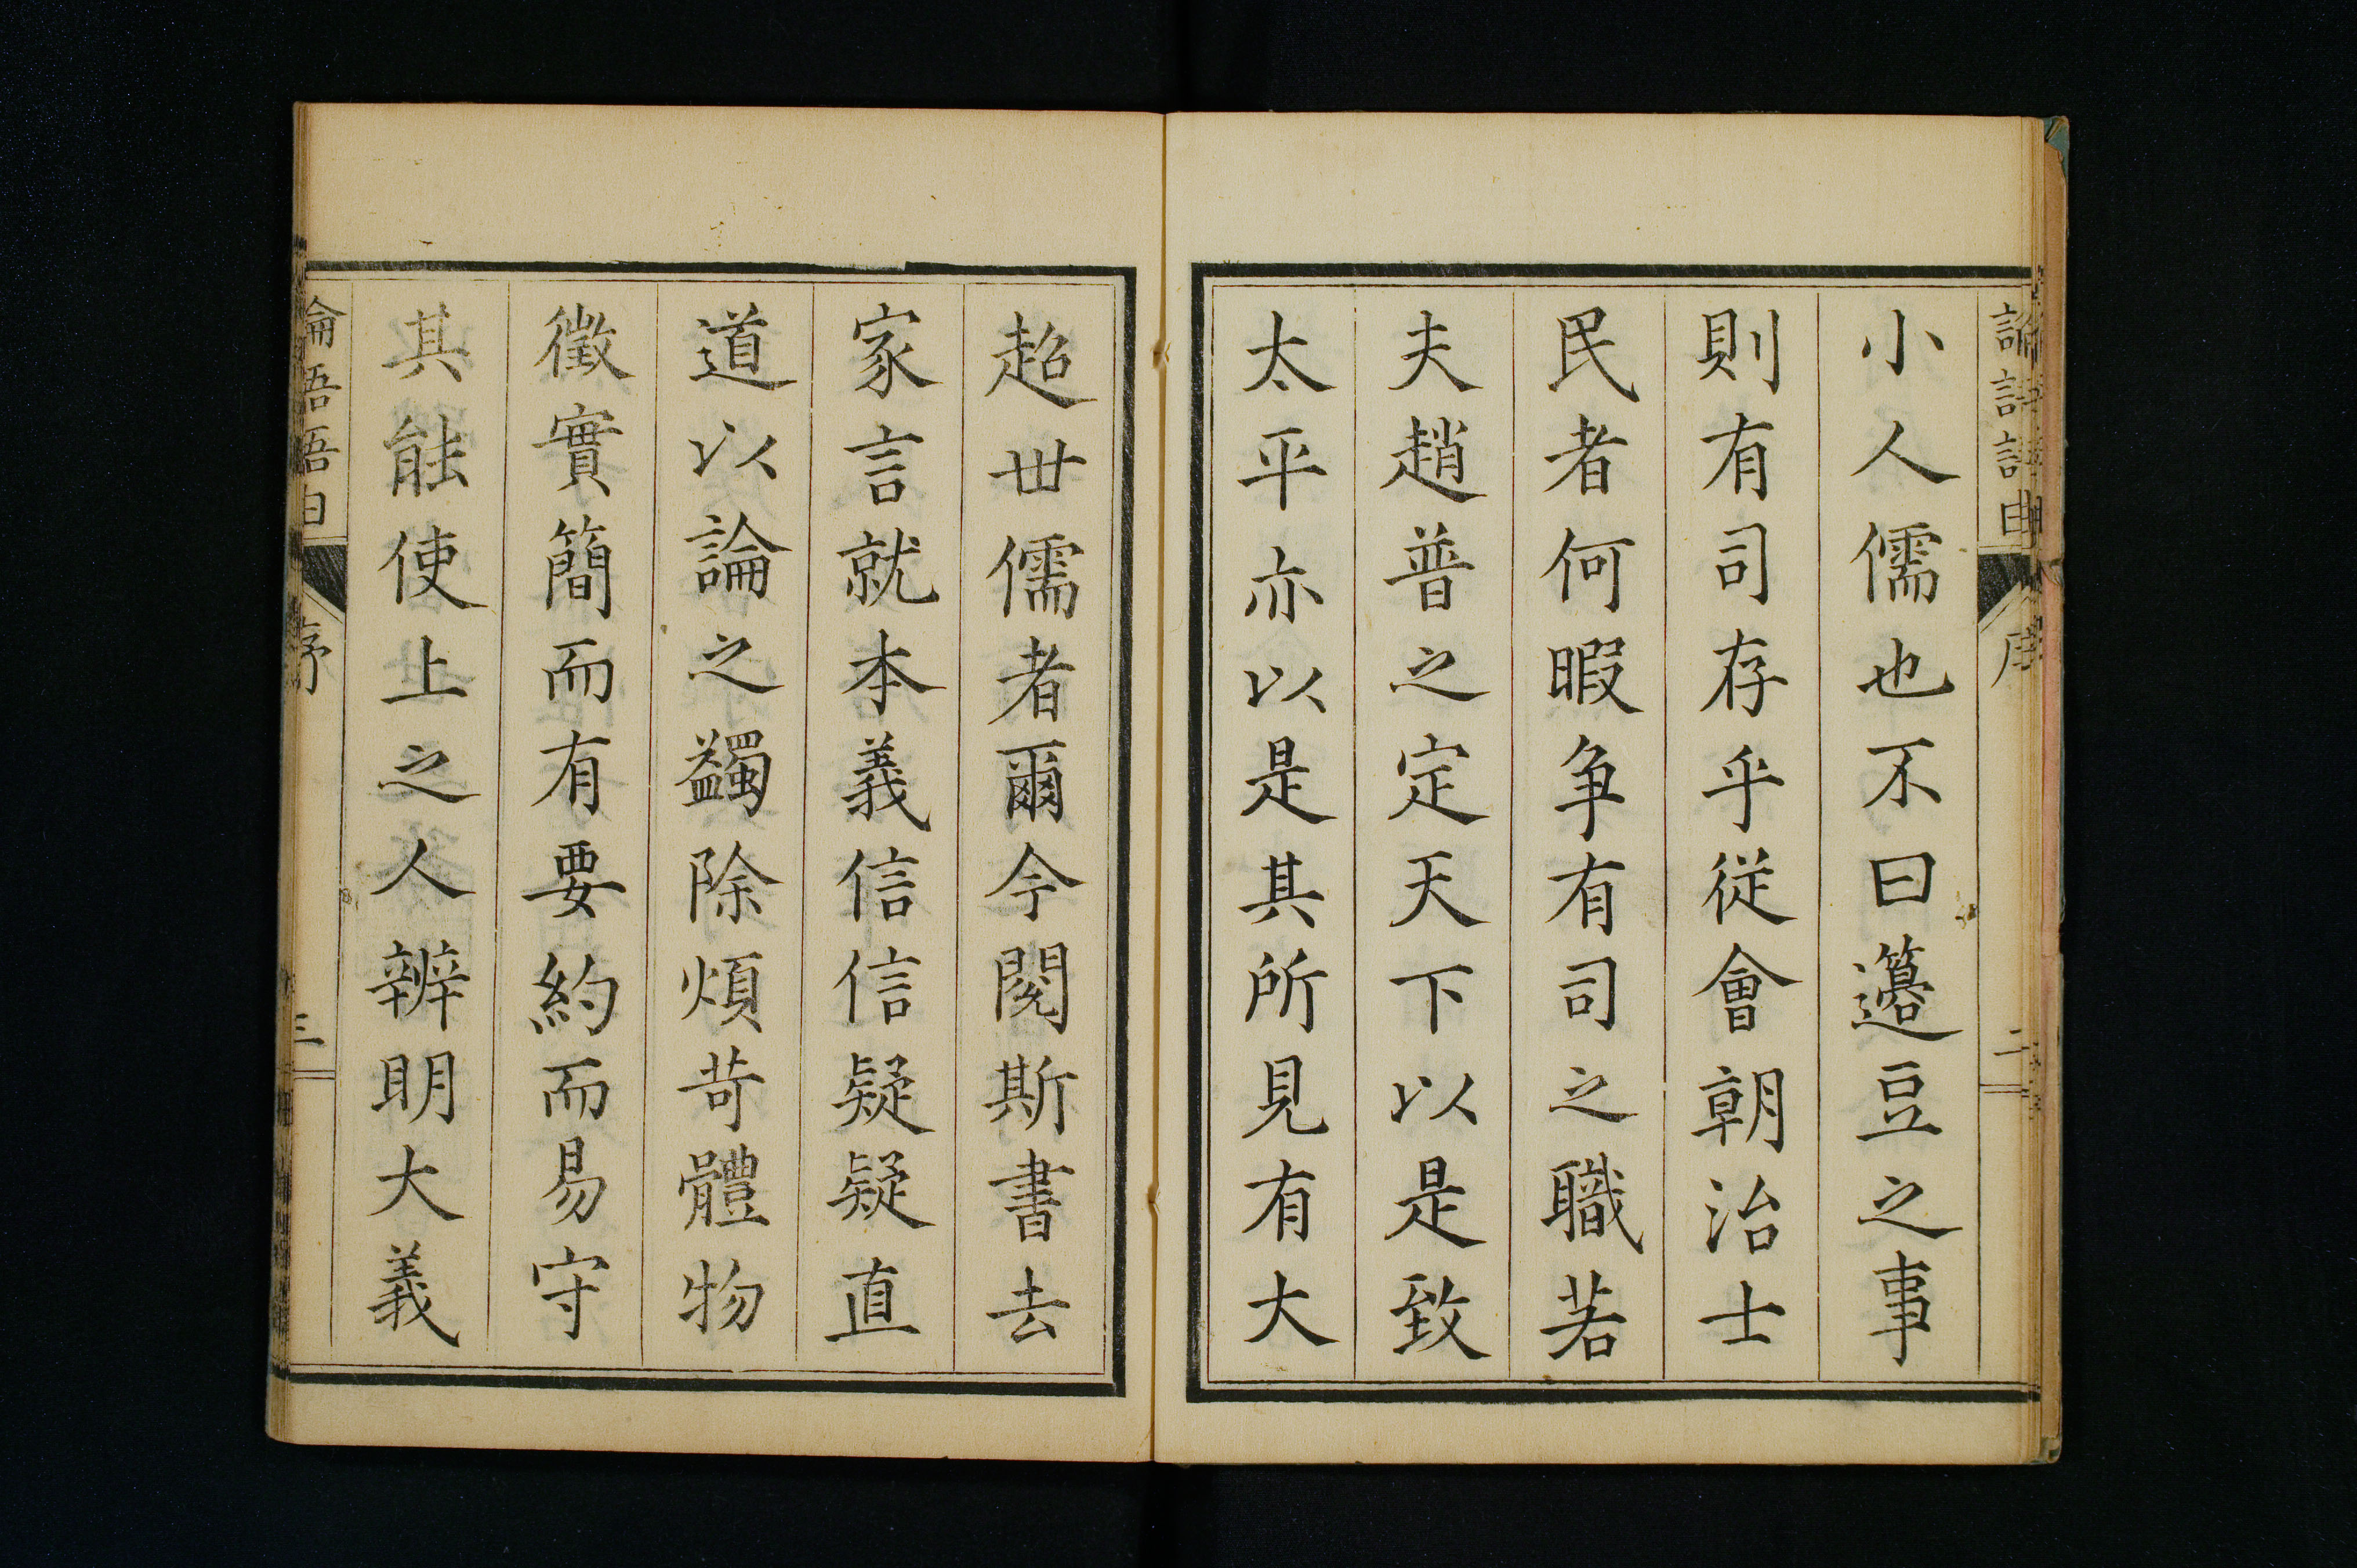 小人儒也不曰籩豆之事
則有司存乎從會朝治士
民者何暇争有司之職若
夫趙普之定天下以是致
太平亦以是其所見有大
序
二
超世儒者爾今閱斯書去
家言就本義信信疑疑直
道以論之蠲除煩苛體物
徵實簡而有要約而易守
其能使上之人辨明大義
序
三